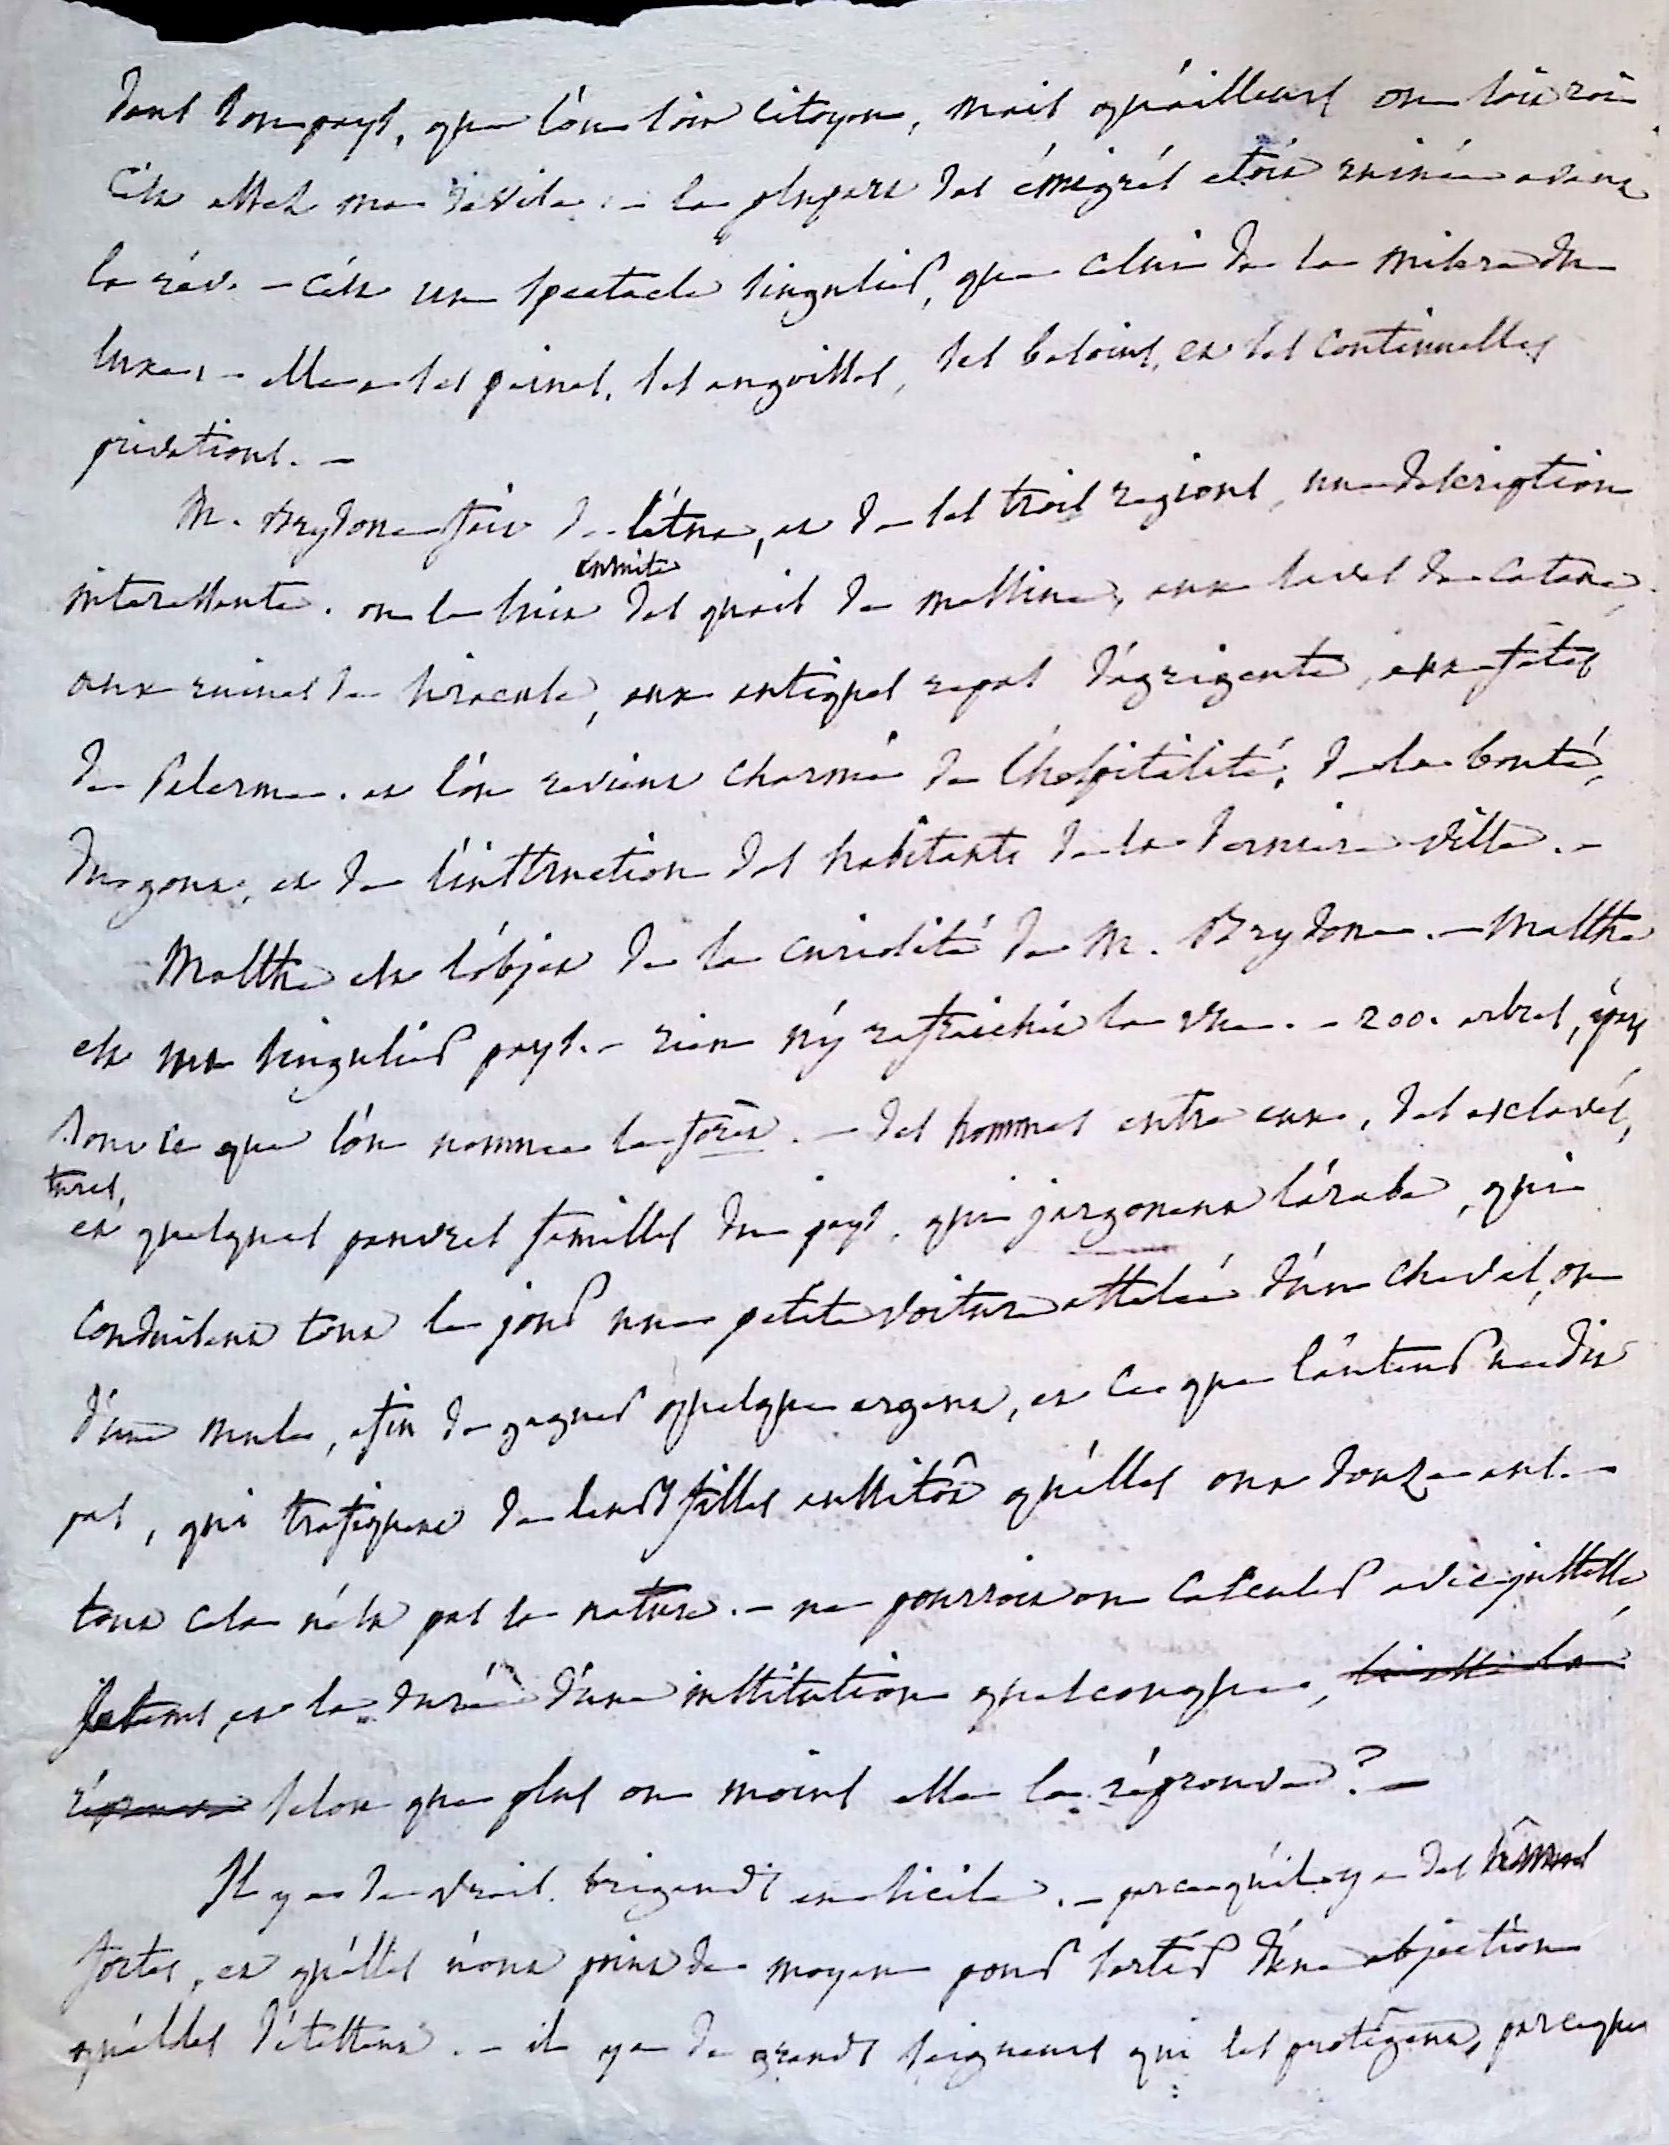 dans son pays, que l'on soit citoyen, mais qu'ailleurs on soit roi
C'est assez ma devise. — la plupart des émigrés étoit ruinée avant
la rév. — C'est un spectacle singulier, que celui de la misere du
luxe. — elle a ses peines, ses angoisses, ses besoins, et ses continuelles
privations. —
M. Brydone fait de l'étna, et de ses trois regions, une description
interessante. on le suit ensuite des quais de messine, aux laves de catane,
aux ruines de siracuse, aux antiques repas d'agrigente, aux fêtes
de Palerme. et l'on revient charmé de l'hospitalité, de la bonté,
du gout, et de l'instruction des habitants de la derniere ville. —
Malthe est l'objet de la curiosité de M. Brydone. — Malthe
est un singulier pays. — rien n'y rafraichit la vue. — 200. arbres, épars
sont ce que l'on nomme la forêt. — des hommes entre eux, des esclaves,
turcs,
et quelques pauvres familles du pays, qui jargonent l'arabe, qui
conduisent tout le jour une petite voiture attelée d'un cheval, ou
d'une mule, afin de gagner quelque argent, et ce que l'auteur ne dit
pas, qui trafiquent de leurs filles aussitôt qu'elles ont douze ans. —
tout cela n'est pas la nature. — ne pourroit on calculer avec justesse,
et la durée d'une institution quelconque,
selon que plus ou moins elle la réprouve? —
Il y a de vrais brigands en sicile. — parce qu'il y a des
fortes, et qu'elles n'ont point de moyen pour sortir d'une abjection
qu'elles détestent. — il y a de grands seigneurs qui les protègent, parceque